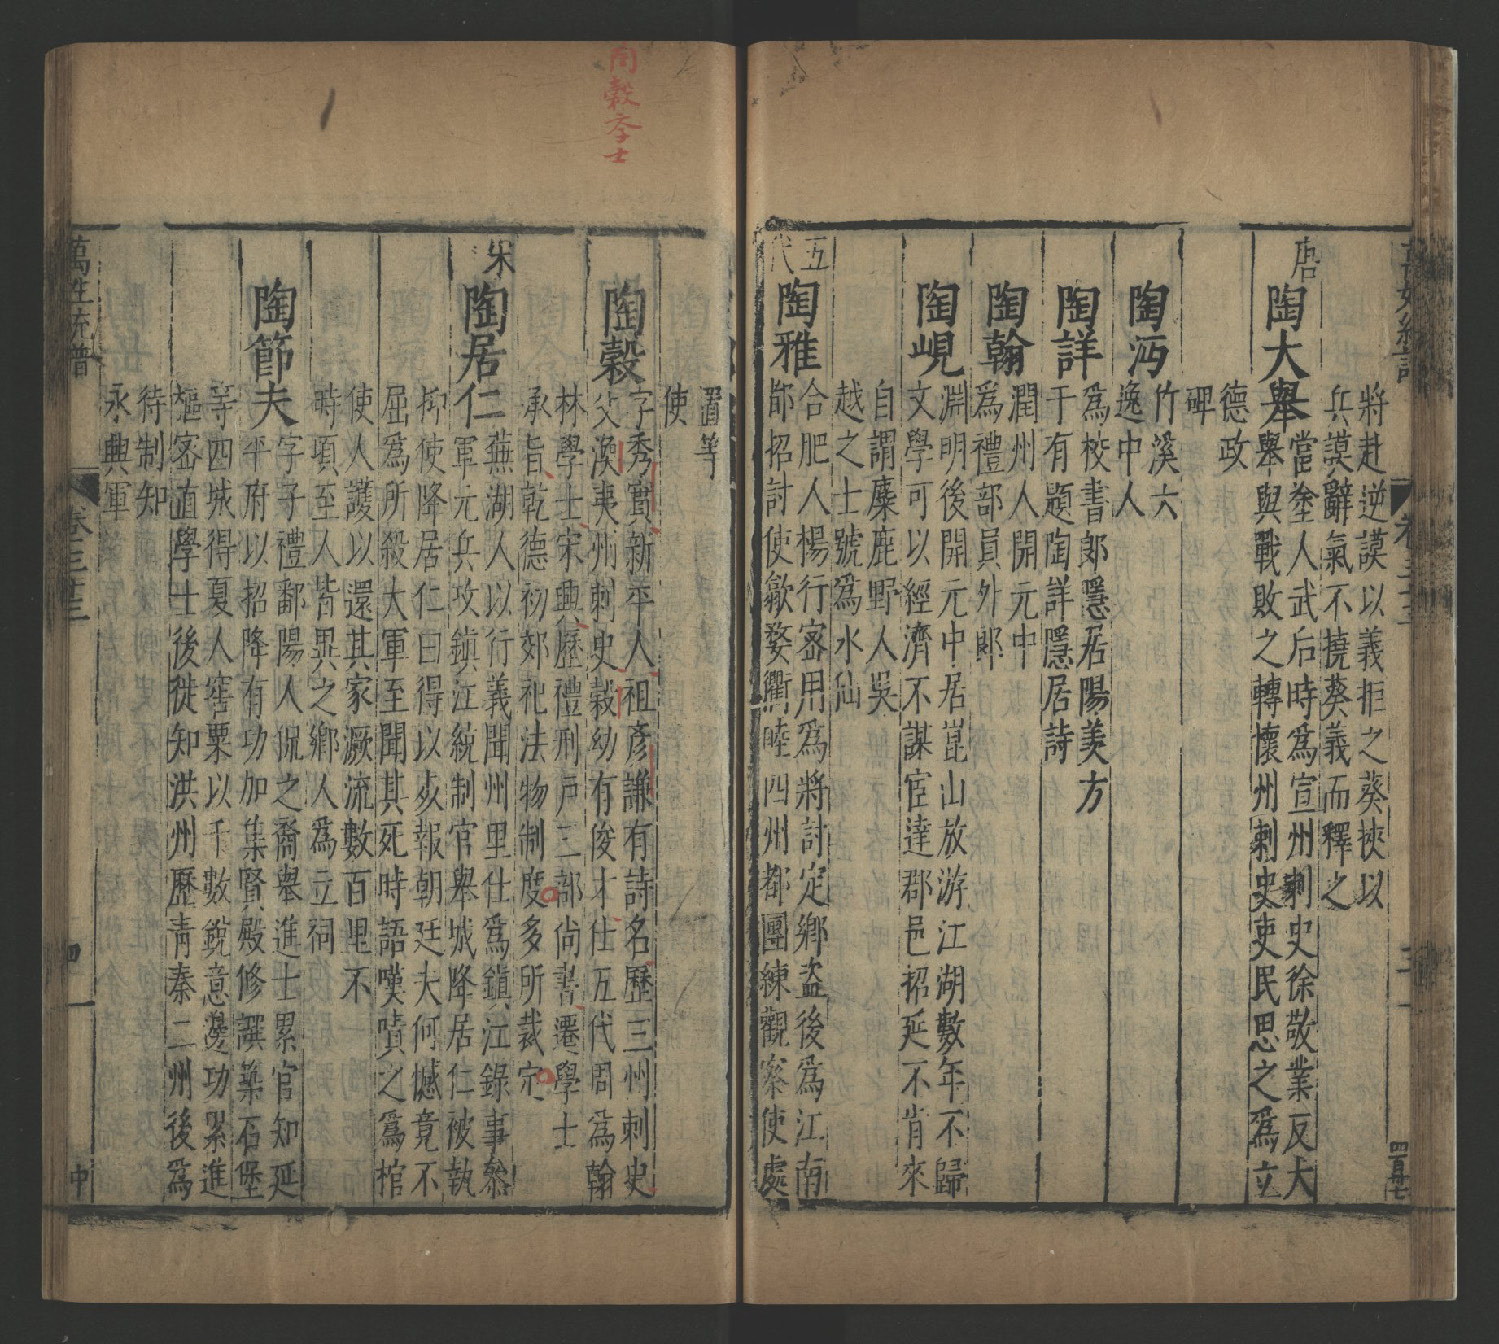 將赴逆謨以義拒之葵挾以
兵謨辭氣不撓葵義而釋之
唐
陶大舉
當塗人武后時爲宣州刺史徐敬業反大
舉與戰敗之轉懷州刺史吏民思之爲立
德政
碑
陶沔
竹溪六
逸中人
陶詳
爲校書郎隱居陽羨方
干有題陶詳隱居詩
陶翰
潤州人開元中
爲禮部員外郎
陶峴
淵明後開元中居崑山放游江湖數年不歸
文學可以經濟不謀宦達郡邑招延不肯來
自謂麋鹿野人吳
越之士號爲水仙
五代
陶雅
合肥人楊行密用爲將討定鄉盗後爲江南
都招討使歙婺衢睦四州都團練觀察使處
置等
使
陶穀
字秀實新平人祖彦謙有詩名歷三州刺史
父渙夷州刺史穀幼有俊才仕五代周爲翰
林學士宋興歷禮刑戶三部尚書遷學士
承旨乾德初郊祀法物制度多所裁定
宋
陶居仁
蕪湖人以行義聞州里仕爲鎮江錄事叅
軍元兵攻鎮江統制官舉城降居仁被執
抑使降居仁曰得以死報朝廷夫何憾竟不
屈爲所殺大軍至聞其死時語嘆嘖之爲棺
使人護以還其家溺流數百里不
時頃至人皆異之鄉人爲立祠
陶節夫
字子禮鄱陽人侃之裔舉進士累官知延
平府以招降有功加集賢殿修譔築石堡
等四城得夏人窖粟以千數銳意邊功累進
樞密直學士後徙知洪州歷青秦二州後爲
待制知
永興軍
萬姓統譜
卷三十三
四
中
陶穀學士